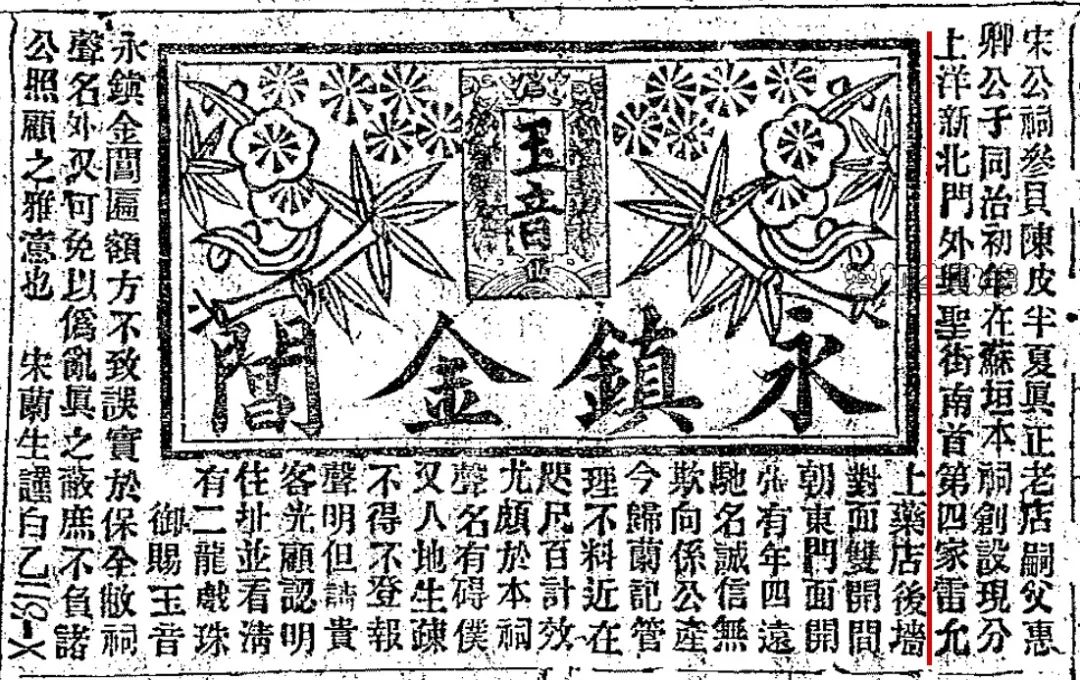 宋公祠參貝陳皮半夏眞正老店嗣父惠
卿公子同治初年在蘇垣本祠創設現分
上洋新北門外興聖街南首第四家雷允
玉音
永鎮金閶
上藥店後墻
對面雙開間
朝東門面開
張有年四遠
馳名誠信無
欺向係公產
今歸蘭記管
理不料近在
咫尺百計效
尤頗於本祠
聲名有碍僕
又人地生疎
不得不登報
聲明但請貴
客光顧認明
住址並看清
有二龍戲珠
御賜玉音
永鎮金閶匾額方不致誤實於保全敝祠
聲名外又可免以僞亂眞之蔽庶不負諸
公照顧之雅意也 宋蘭生謹白